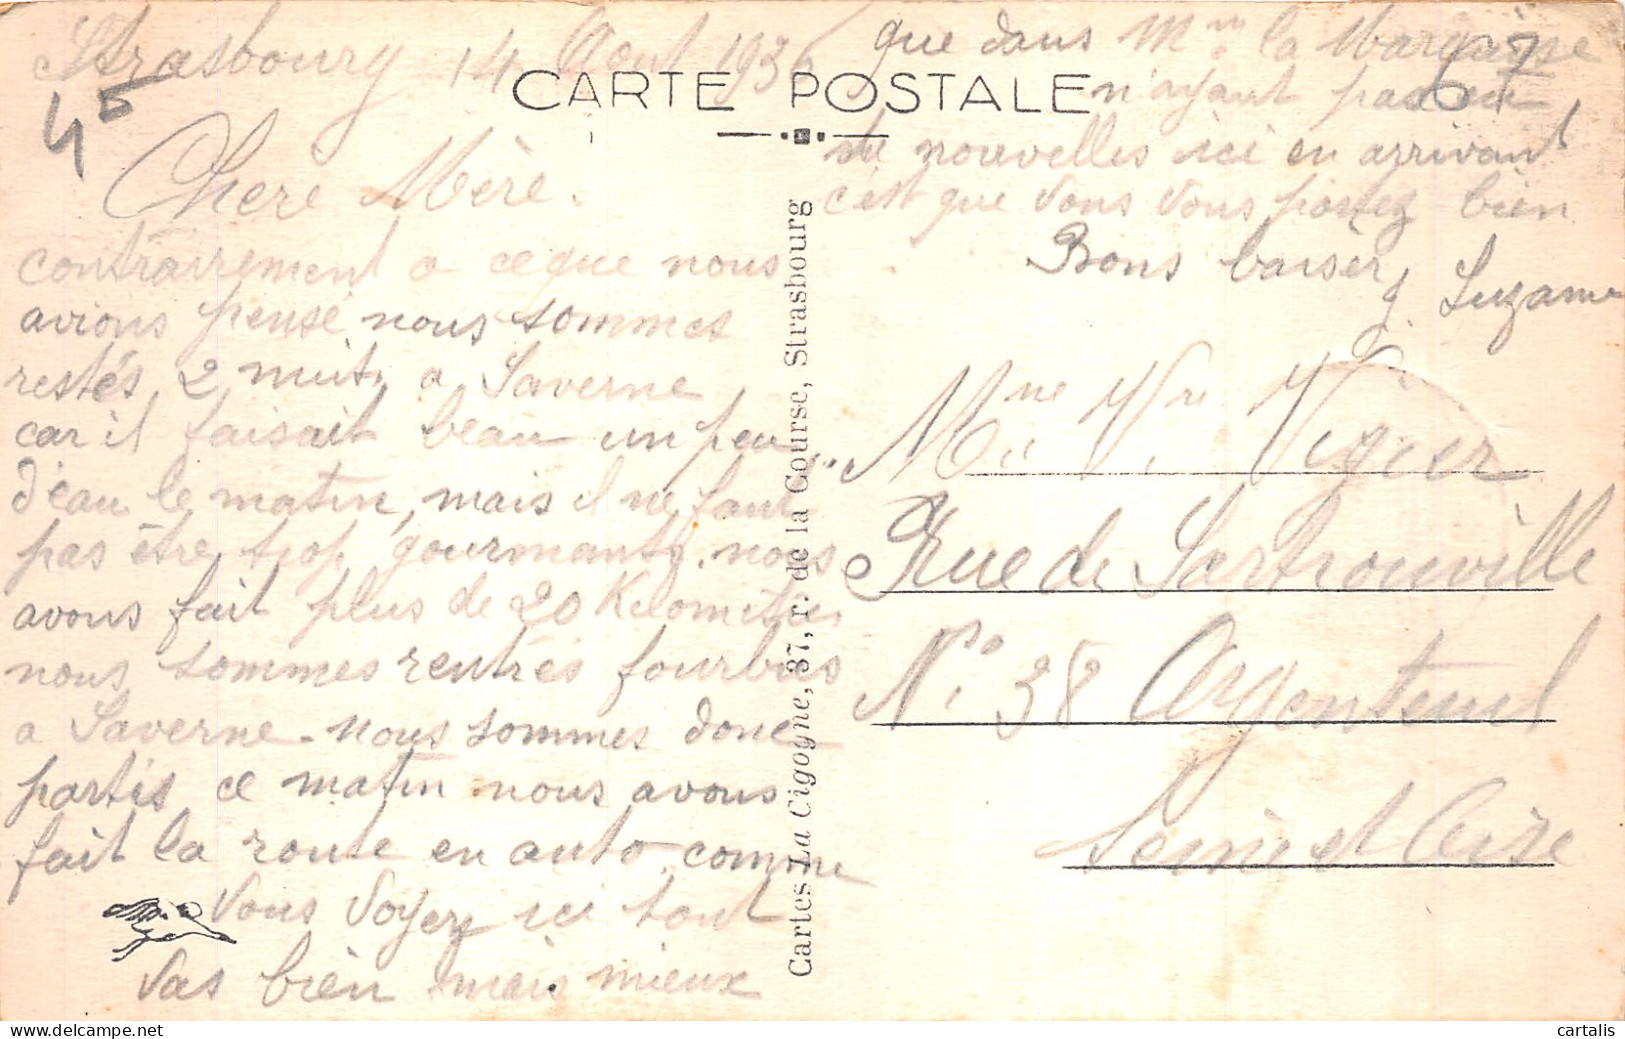 Strasbourg 14 Aout 1936
45
CARTE POSTALE
67
Chere Mère.
contrairement a ce que nous
avions pensé nous sommes
restés 2 nuits a Saverne
car il faisait beau un peu
d'eau le matin, mais il ne faut
pas être trop gourmants. nous
avons fait plus de 20 Kilometres
nous sommes rentrés fourbus
a Saverne. nous sommes donc
partis ce matin nous avons
fait la route en auto. comme
vous voyez ici tout
vas bien mais mieux
que dans Mme la
n'ayant pas eu
de nouvelles ici en arrivant
c'est que vous vous portez bien
Bons baisers Suzanne
Cartes La Cigogne, 37, r. de la Course, Strasbourg
Mme Vve Vigier
Rue de Sartrouville
No 38 Argenteuil
Seine et Oise
cartalis.com